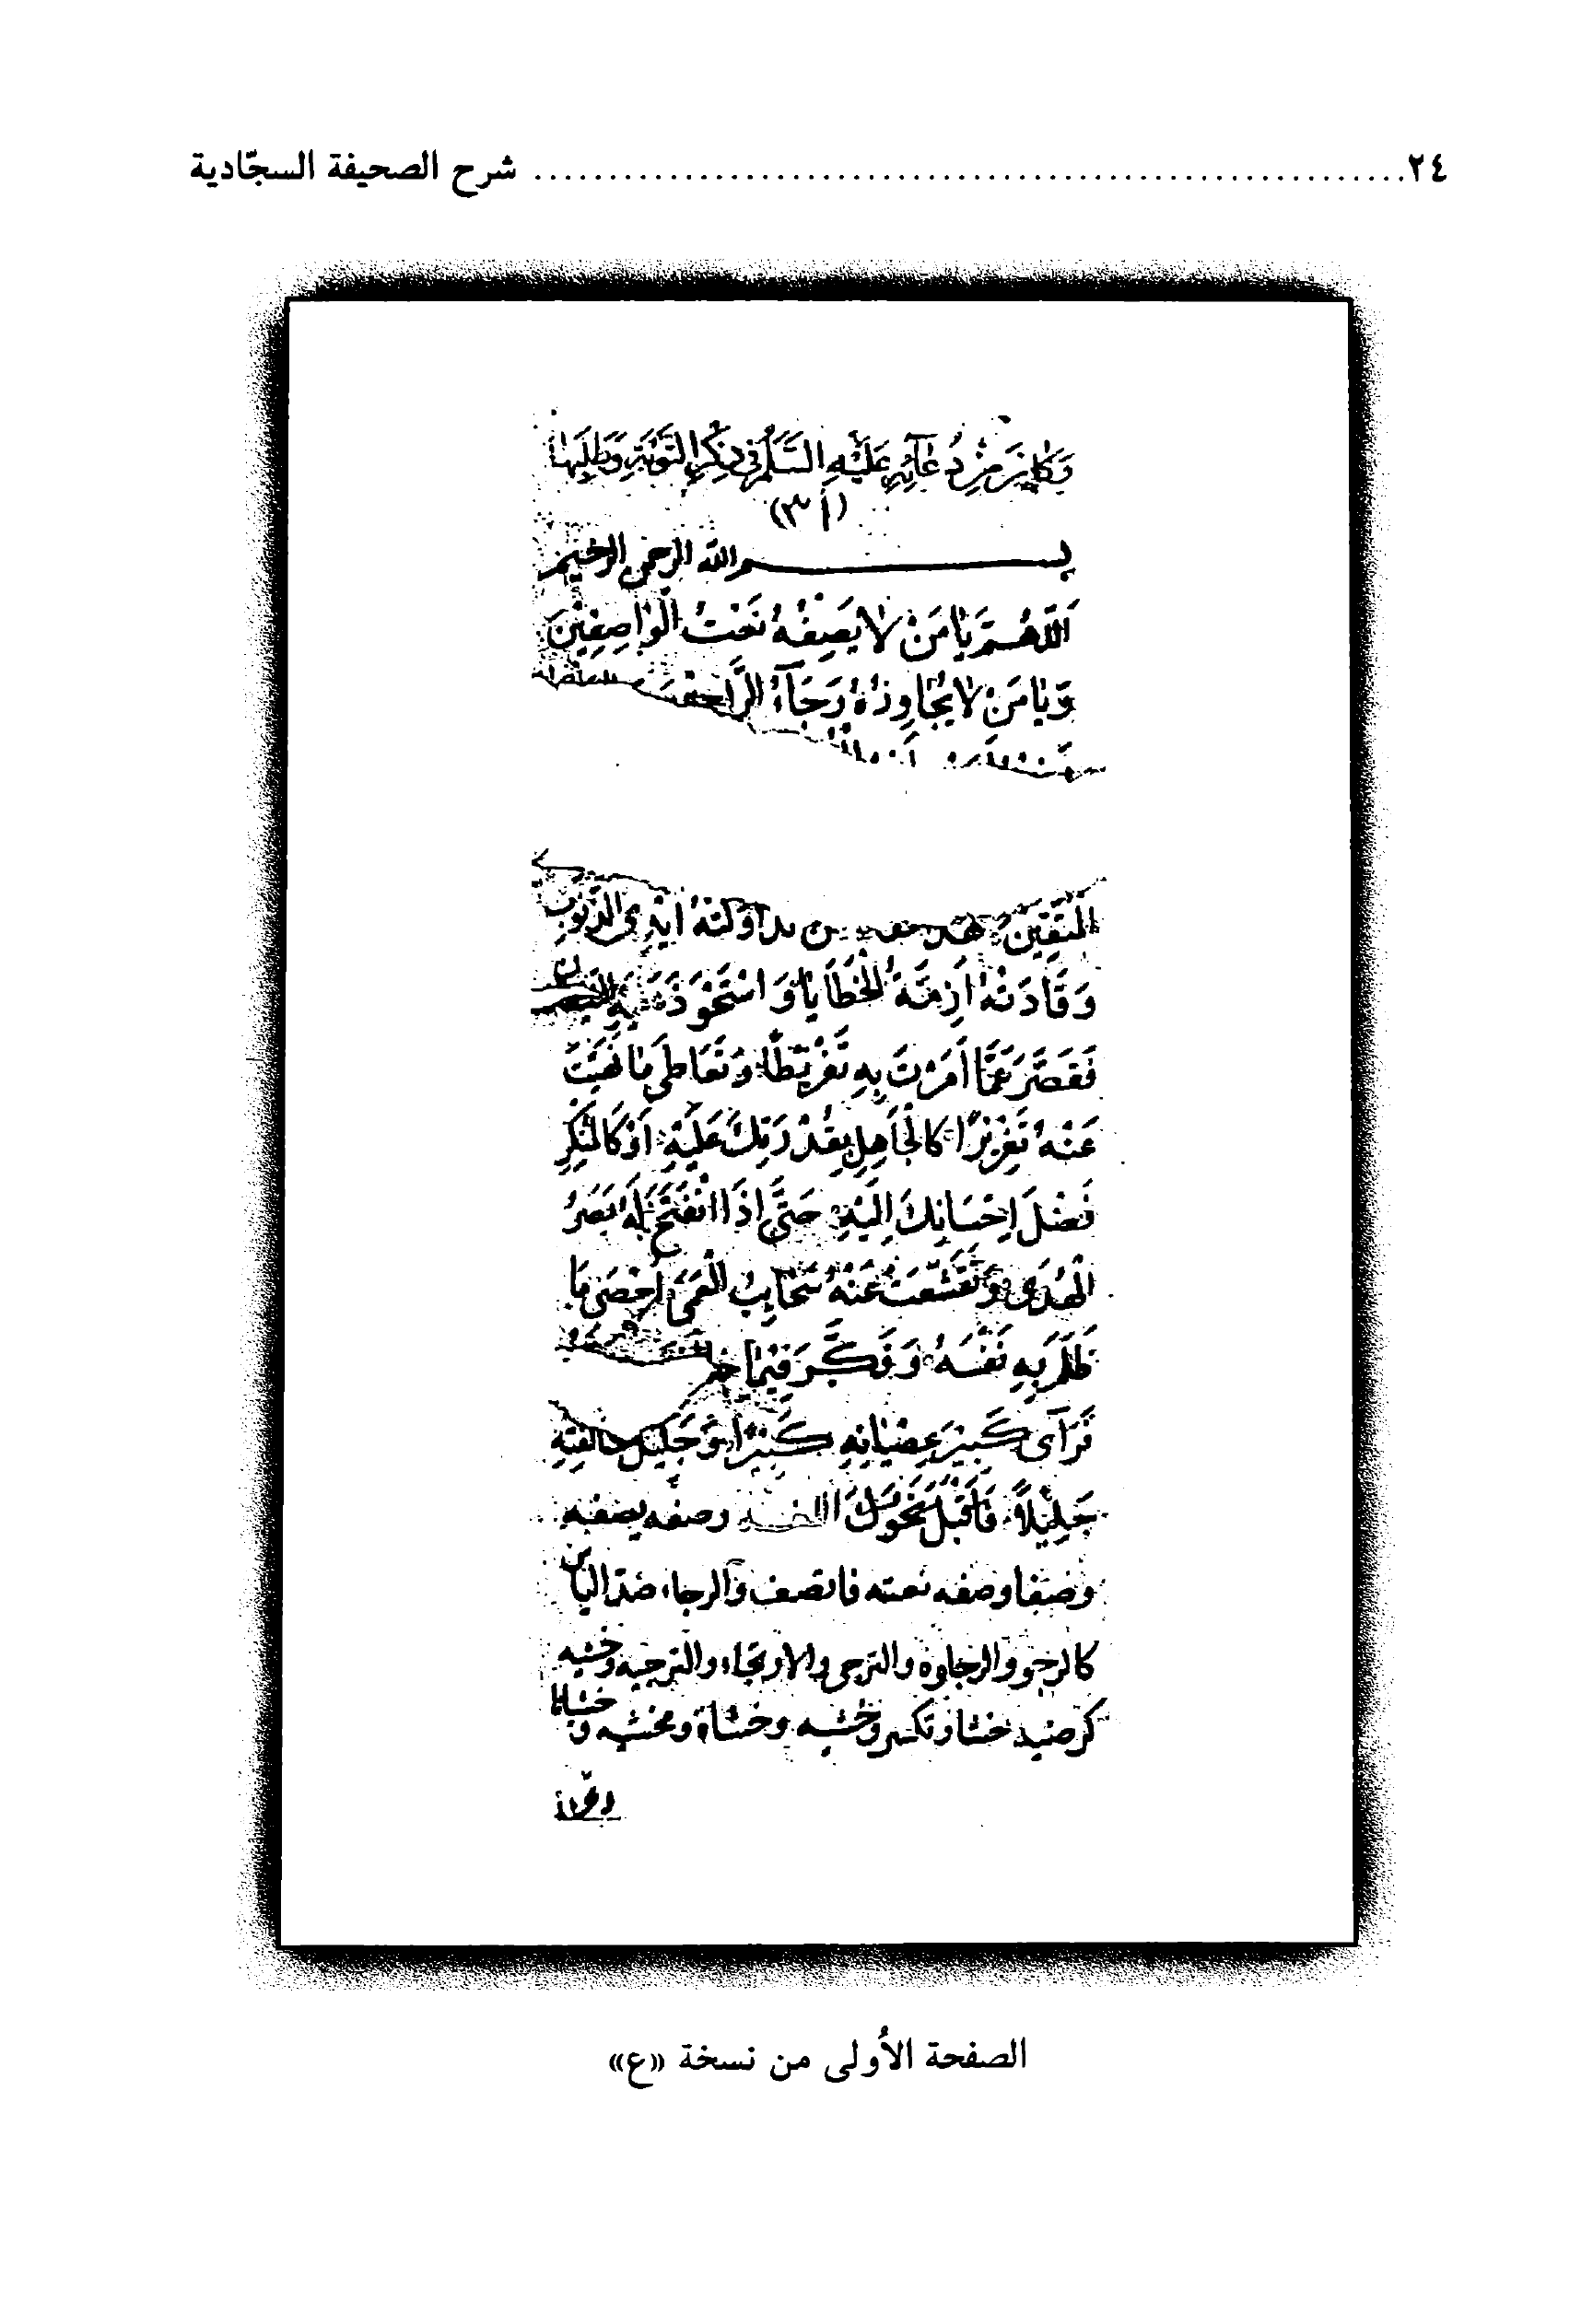 ٢٤ ........................................................ شرح الصحيفة السجّادية
وَكَانَ مِنْ دُعَائِهِ عَلَيْهِ السَّلَامُ فِي ذِكْرِ التَّوْبَةِ وَطَلَبِهَا
(٣١)
بسم الله الرحمن الرحيم
اَللّٰهُمَّ يَا مَنْ لَا يَصِفُهُ نَعْتُ الْوَاصِفِيْنَ
وَيَا مَنْ لَا يُجَاوِزُهُ رَجَاءُ الرَّاجِيْنَ
الْمُتَّقِيْنَ هذا مقام من تَدَاوَلَتْهُ اَيْدِي الذُّنُوْبِ
وَقَادَتْهُ اَزِمَّةُ الْخَطَايَا وَاسْتَحْوَذَ عَلَيْهِ الشيطان
فَقَصَّرَ عَمَّا اَمَرْتَ بِهِ تَفْرِيْطًا وَتَعَاطٰى مَا نَهَيْتَ
عَنْهُ تَعْزِيْرًا كَالْجَاهِلِ بِقُدْرَتِكَ عَلَيْهِ اَوْ كَالْمُنْكِرِ
فَضْلَ اِحْسَانِكَ اِلَيْهِ حَتَّى اِذَا انْفَتَحَ لَهُ بَصَرُ
الْهُدَى وَتَقَشَّعَتْ عَنْهُ سَحَايِبُ الْعَمَى اَحْصَى مَا
ظَلَمَ بِهِ نَفْسَهُ وَفَكَّرَ فِيْمَا
فَرَآى كَبِيْرَ عِصْيَانِهِ كَبِيْرًا وَجَلِيْلَ مخالفَتِهِ
جَلِيْلًا فَاَقْبَلَ نَحْوَكَ وصفه يصفه
وصفا وصفه نعته فاتصف والرجاء ضد الياس
كالرجو والرجاوه والترجي والارتجاء والترجيه وخشيه
كرضيه خشا وتكسر وخشيه وخشاة ومخشيه وخشيانا
الصفحة الأولى من نسخة «ع»